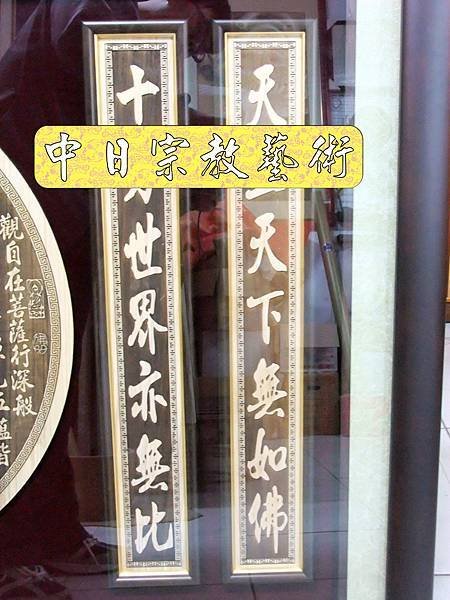 中日宗教藝術
天
天下無如佛
十
世界亦無比
觀自在菩薩行深般
蘊皆